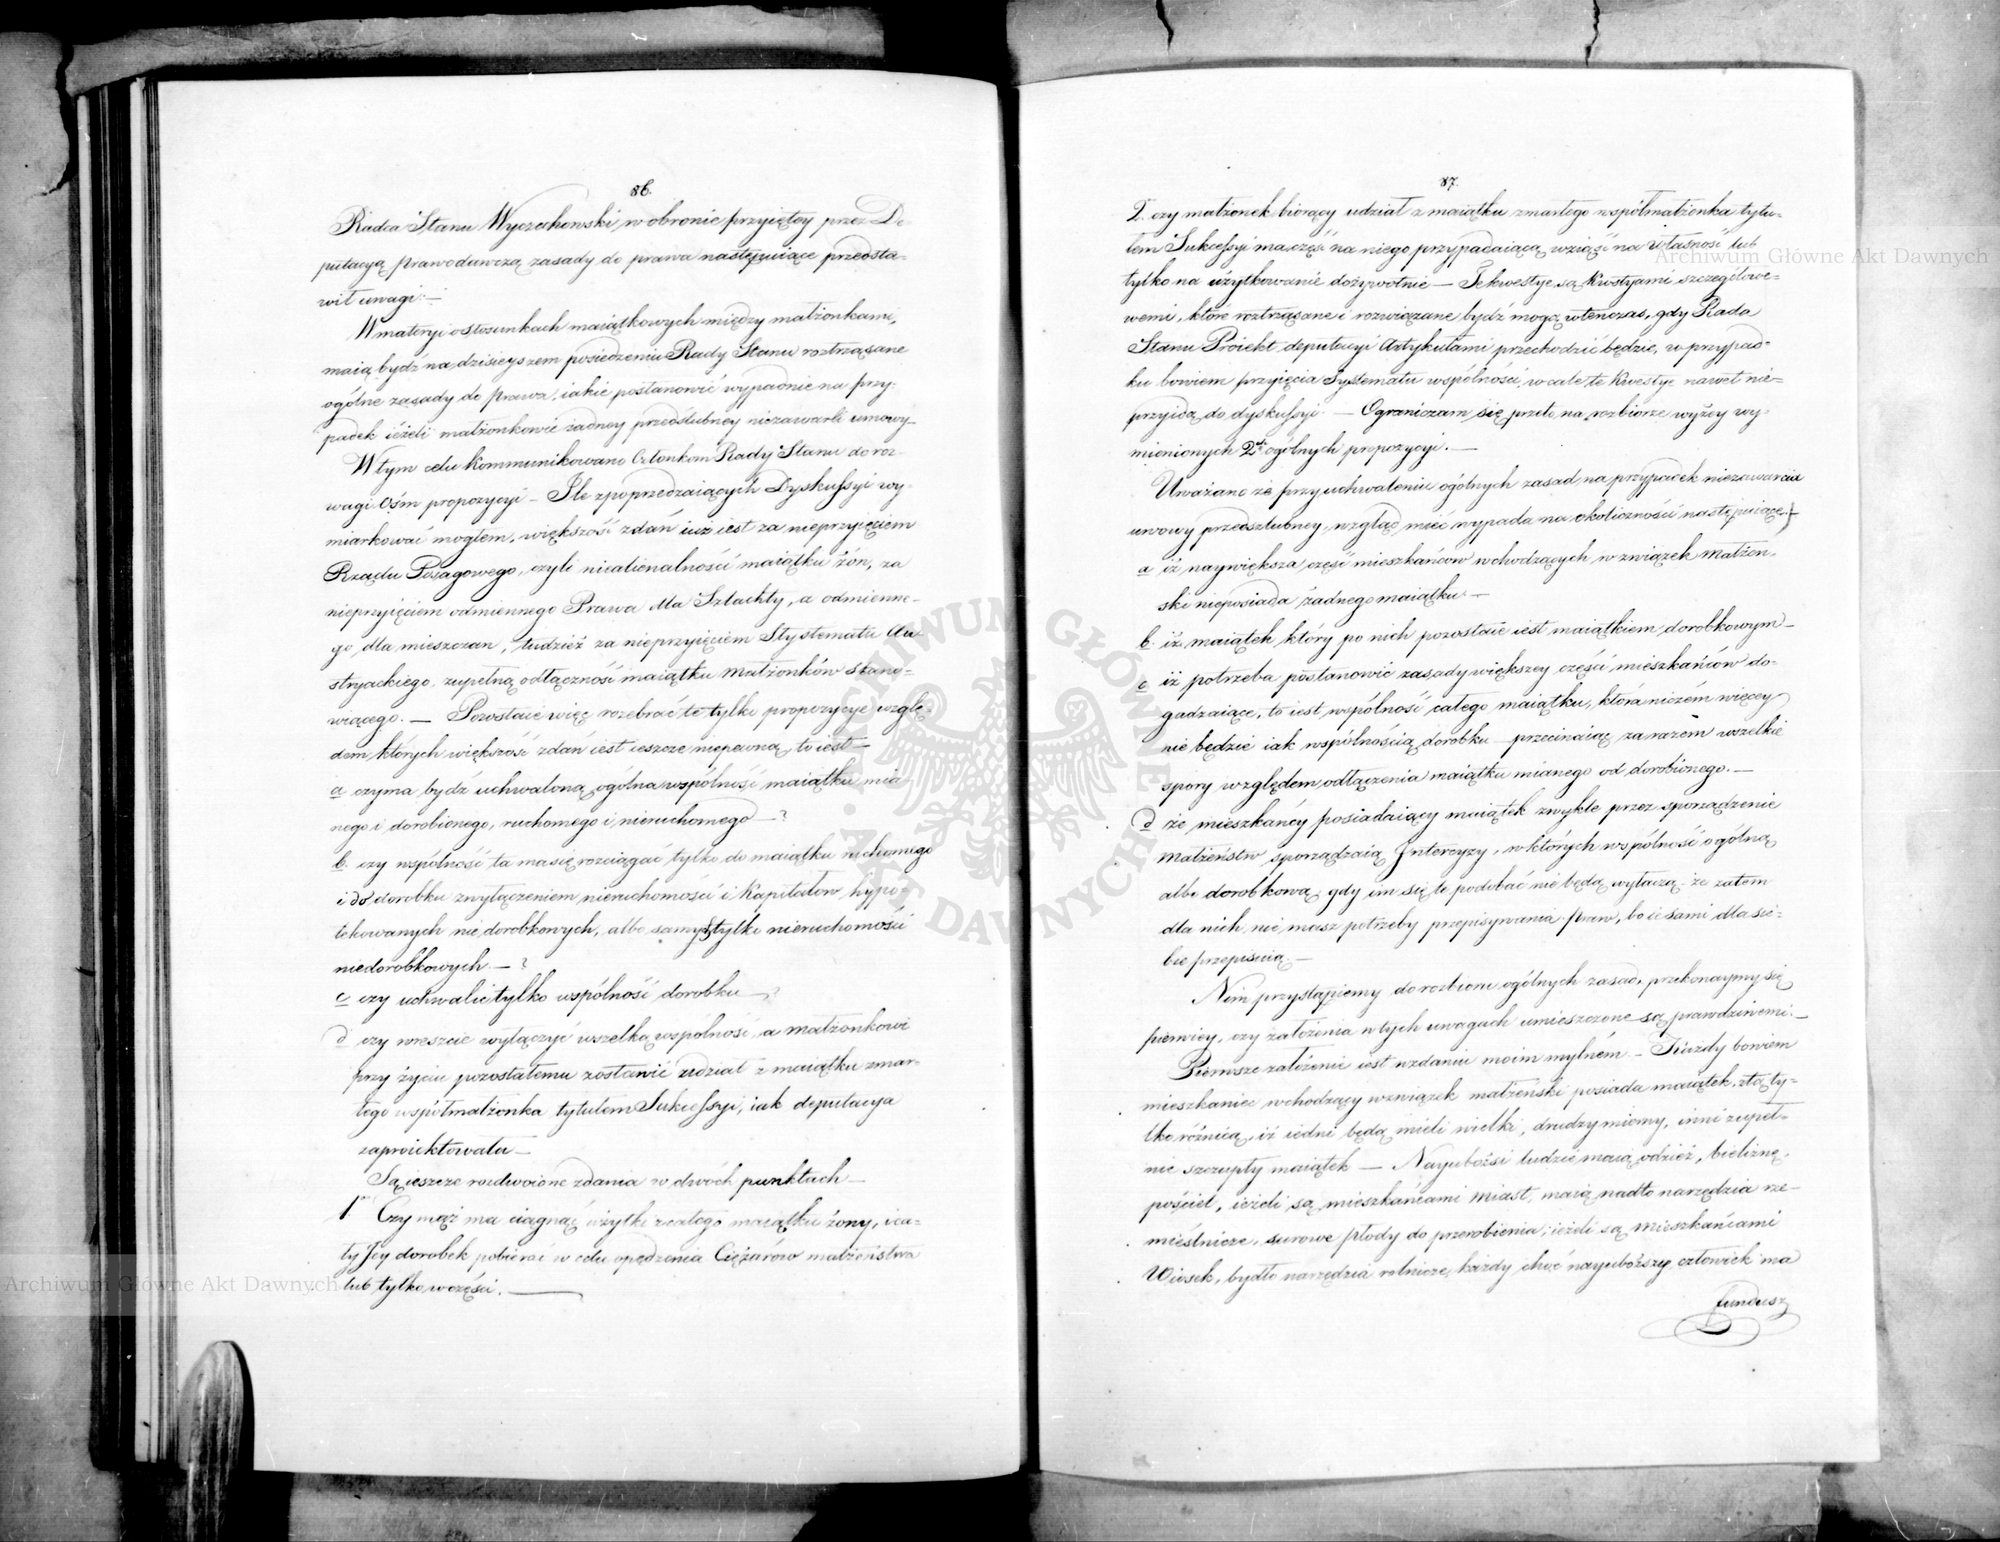 86.
Radca Stanu Wyczechowski, w obronie przyiętey przez De-
putacyą prawodawczą zasady do prawa następuiące przedsta-
wił uwagi. —
W materyi o stosunkach maiątkowych między małżonkami,
maią bydź na dzisieyszem posiedzeniu Rady Stanu roztrząsane
ogólne zasady do prawa, iakie postanowić wypadnie na przy-
padek ieżeli małżonkowie żadney przedślubney niezawarli umowy
W tym celu kommunikowano Członkom Rady Stanu do roz-
wagi ośm propozycyi — Ile z poprzedzaiących Dyskussyi wy-
miarkować mogłem, większość zdań iuż iest za nieprzyięciem
Rządu Posagowego, czyli niealienalności maiątku żón, za
nieprzyięciem odmiennego Prawa dla Szlachty, a odmienne-
go dla mieszczan, tudzież za nieprzyięciem Systematu Au-
stryackiego, zupełną odłączność maiątku małżonków stano-
wiącego. — Pozostaie więc rozebrać te tylko propozycye wzglę-
dem których większość zdań iest ieszcze niepewną, to iest —
a czy ma bydź uchwaloną ogólna wspólność maiątku mia-
nego i dorobionego, ruchomego i nieruchomego — ?
b. czy wspólność ta ma się rozciągać tylko do maiątku ruchomego
i do dorobku z wyłączeniem nieruchomości i Kapitałow hypo-
tekowanych nie dorobkowych, albo samych tylko nieruchomości
niedorobkowych. — ?
c czy uchwalić tylko wspólność dorobku — ?
d czy wreszcie wyłączyć wszelką wspólność, a małżonkowi
przy życiu pozostałemu zostawić udział z maiątku zmar-
łego współmałżonka tytułem Sukcessyi, iak deputacya
zaproiektowała —
Są ieszcze rozdwoione zdania w dwóch punktach —
1 Czy mąż ma ciągnąć użytki z całego maiątku żony, i ca-
ły Jey dorobek pobierać w celu opędzenia Ciężarów małżeństwa
lub tylko w części. —
87.
2. czy małżonek biorący udział z maiątku zmarłego współmałżonka tytu-
łem Sukcessyi ma część na niego przypadaiącą wziąść na własność lub
tylko na użytkowanie dożywotnie — Te kwestye są Kwestyami szczegółowe-
wemi, które roztrząsane i rozwiązane bydź mogą wtenczas, gdy Rada
Stanu Proiekt deputacyi Artykułami przechodzić będzie, w przypad-
ku bowiem przyięcia Systematu wspólności, wcale te Kwestye nawet nie-
przyidą do dyskussyi. — Ograniczam się przeto na rozbiorze wyżey wy-
mienionych 2ch ogólnych propozycyi. —
Uważano że przy uchwaleniu ogólnych zasad na przypadek niezawarcia
umowy przedszlubney, wzgląd mieć wypada na okoliczności następuiące
a iż naywiększa część mieszkańców wchodzących w związek małżeń-
ski nieposiada żadnego maiątku. —
b. iż maiątek który po nich pozostaie iest maiątkiem dorobkowym —
c iż potrzeba postanowić zasady większey części mieszkańców do-
gadzaiące, to iest wspólność całego maiątku, która niczém więcey
nie będzie iak wspólnością dorobku przecinaiąc zarazem wszelkie
spory względem odłączenia maiątku mianego od dorobionego. —
d że mieszkańcy posiadaiący maiątek zwykle przez sporządzenie
małżeństw sporządzaią Intercyzy, w których wspólność ogólną
albo dorobkową, gdy im się te podobać nie będą wyłączą, że zatem
dla nich nie masz potrzeby przepisywania praw, bo ie sami dla sie-
bie przepiszą. —
Nim przystąpiemy do rozbioru ogólnych zasad, przekonaymy się
pierwiey, czy założenia w tych uwagach umieszczone są prawdziwemi. —
Pierwsze założenie iest w zdaniu moim mylném. — Każdy bowiem
mieszkaniec wchodzący w związek małżeński posiada maiątek, z tą ty-
lko różnicą, iż iedni będą mieli wielki, drudzy mierny, inni zupeł-
nie szczupły maiątek — Nayubożsi ludzie maią odzież, bieliznę,
pościel, ieżeli są mieszkańcami miast, maią nadto narzędzia rze-
mieślnicze, surowe płody do przerobienia; ieżeli są mieszkańcami
Wiosek, bydło narzędzia rolnicze, każdy choć nayuboższy człowiek ma
fundusz
Archiwum Główne Akt Dawnych
Archiwum Główne Akt Dawnych
ARCHIWUM GŁÓWNE AKT DAWNYCH